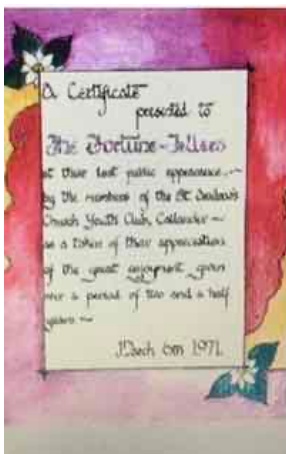 A Certificate
presented to
The Fortune-Tellers
at their last public appearance
by the members of the St. Andrew's
Church Youth Club, Callander ~
as a token of their appreciation
of the great enjoyment given
over a period of two and a half
years ~
March 6th 1971